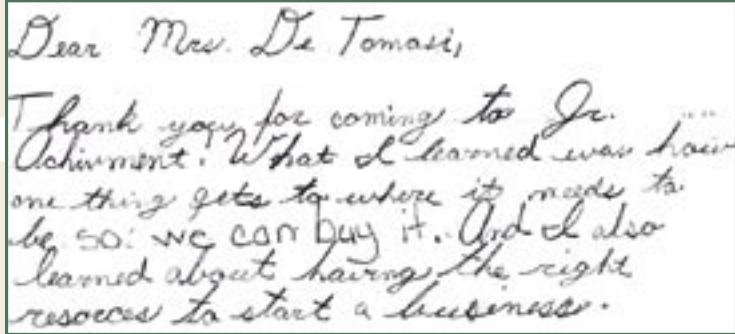 Dear Mrs. De Tomasi,
Thank you for coming to Jr.
Achivment. What I learned was how
one thing gets to where it needs to
be so we can buy it. And I also
learned about having the right
resorces to start a business.